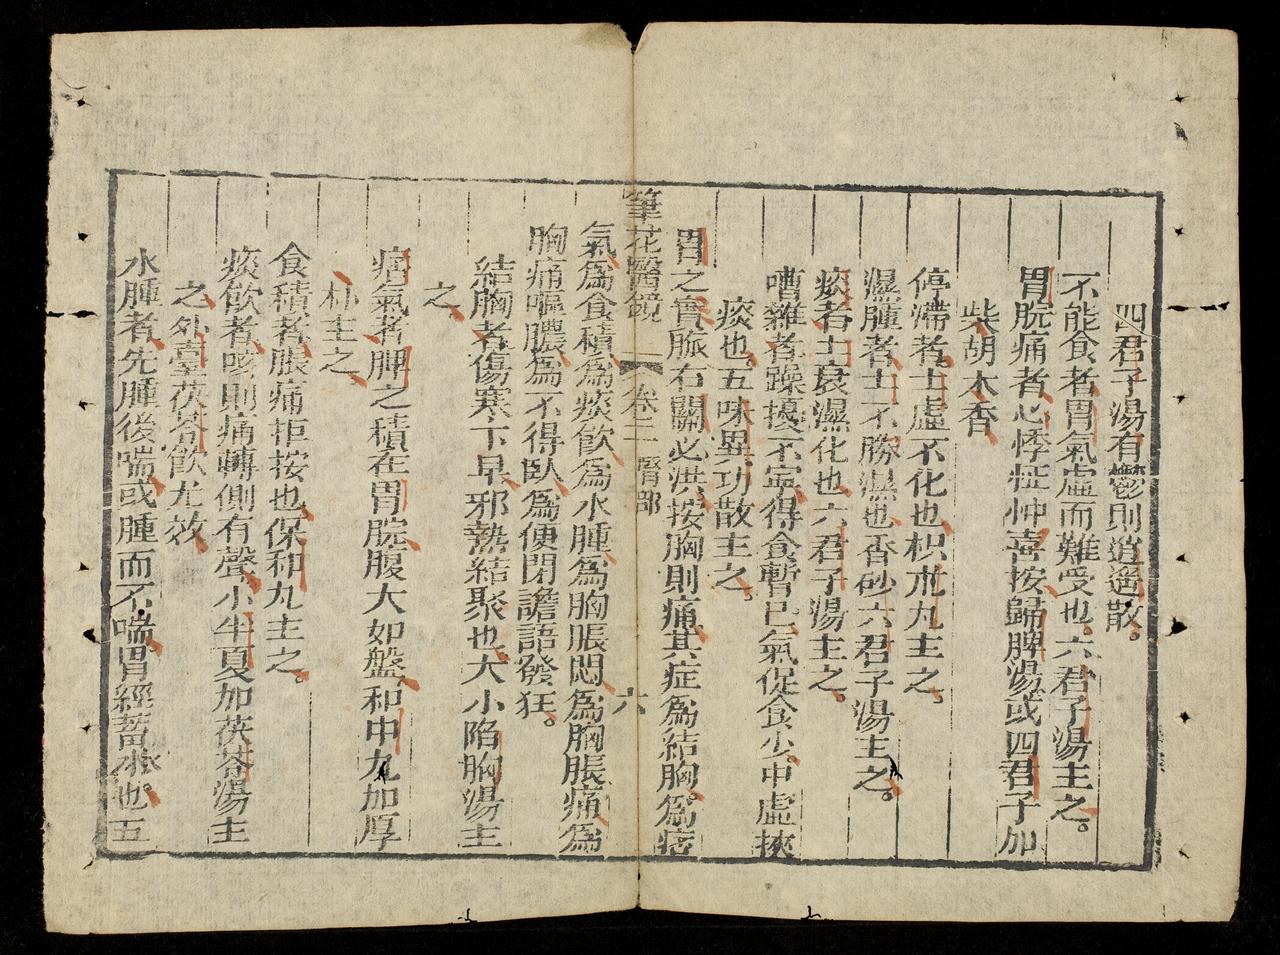 四君子湯有鬱則逍遥散。
不能食者胃氣虛而難受也六君子湯主之。
胃脘痛者心悸怔忡喜按歸脾湯或四君子加
柴胡木香
停滯者土虛不化也枳朮丸主之。
濕腫者土不勝濕也香砂六君子湯主之。
痰者土衰濕化也六君子湯主之。
嘈雜者躁擾不寧得食暫已氣促食少中虛挾
痰也五味異功散主之。
胃之實脈右關必洪按胸則痛其症為結胸為痞
筆花醫鏡 卷二 腎部 六
氣為食積為痰飲為水腫為胸脹悶為胸脹痛為
胸痛嘔膿為不得臥為便閉譫語發狂。
結胸者傷寒下早邪熱結聚也大小陷胸湯主
之
痞氣者脾之積在胃脘腹大如盤和中丸加厚
朴主之
食積者脹痛拒按也保和丸主之。
痰飲者咳則痛轉側有聲小半夏加茯苓湯主
之外臺茯苓飲尤效
水腫者先腫後喘或腫而不喘胃經蓄水也五